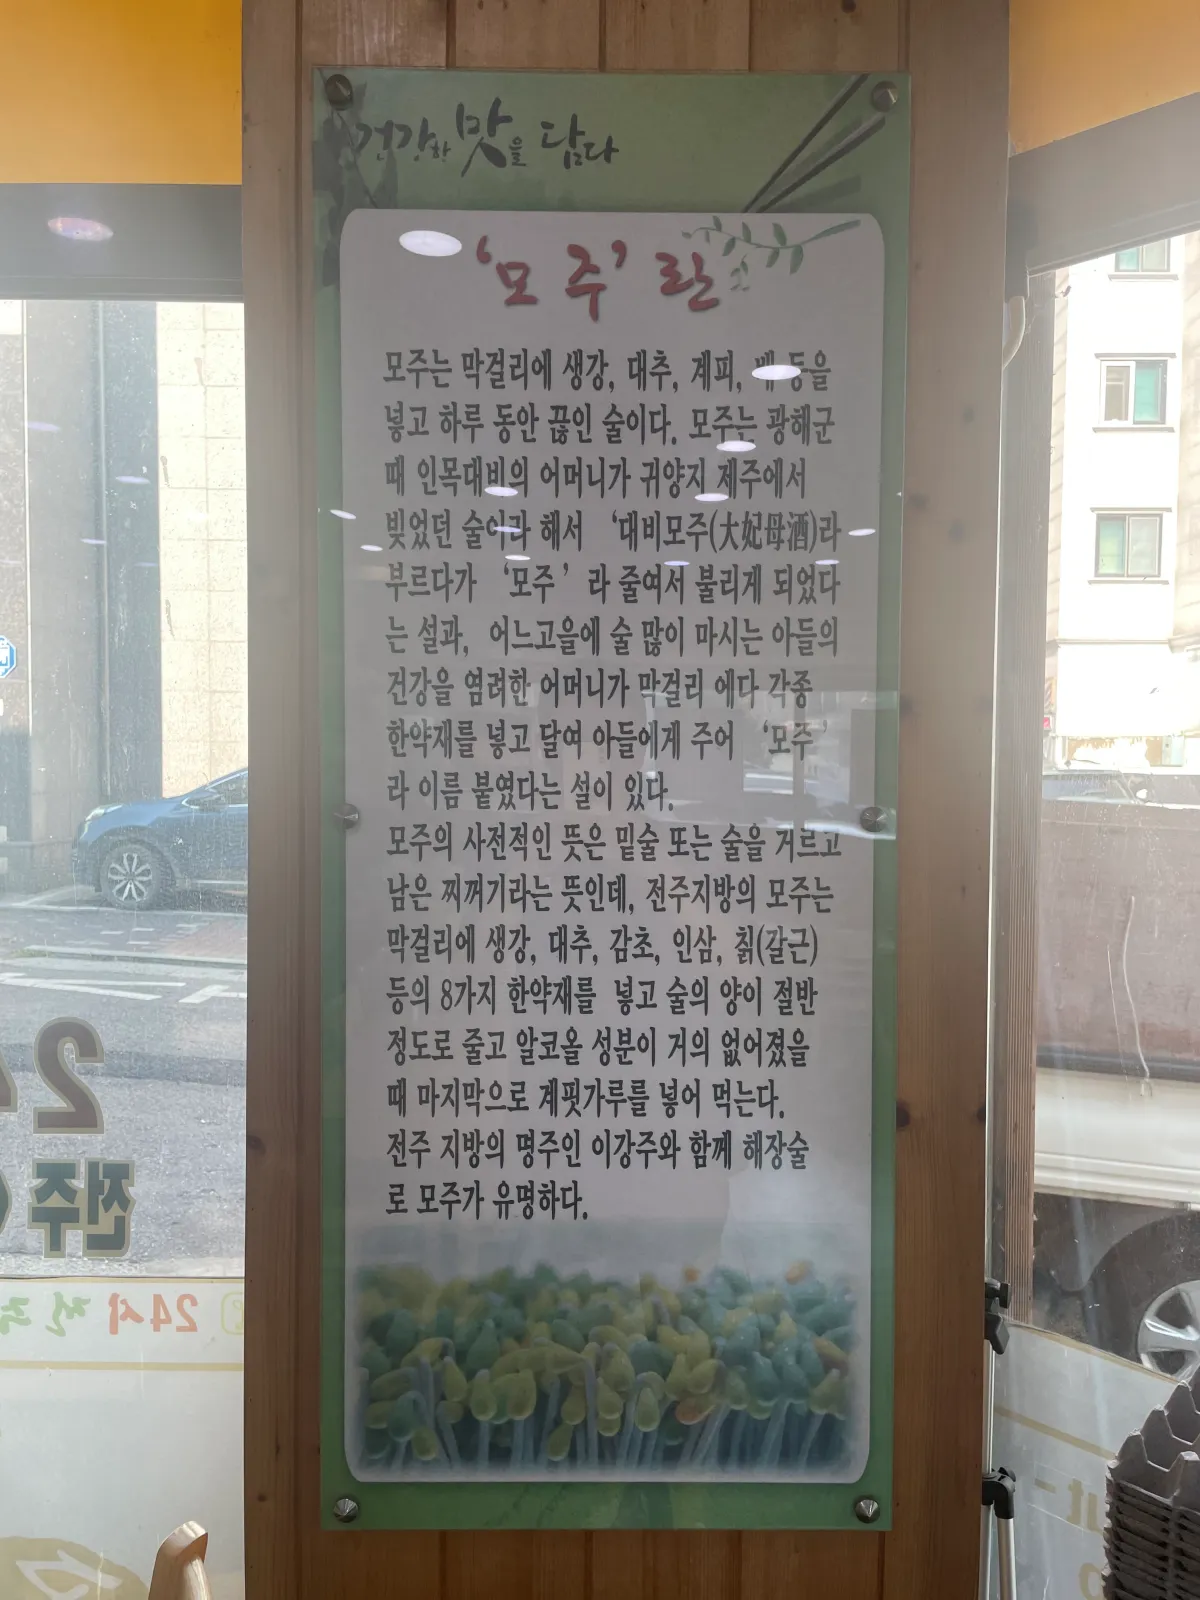 건강한 맛을 담다
‘모주’란
모주는 막걸리에 생강, 대추, 계피, 배 등을
넣고 하루 동안 끓인 술이다. 모주는 광해군
때 인목대비의 어머니가 귀양지 제주에서
빚었던 술이라 해서 ‘대비모주(大妃母酒)라
부르다가 ‘모주’라 줄여서 불리게 되었다
는 설과, 어느고을에 술 많이 마시는 아들의
건강을 염려한 어머니가 막걸리 에다 각종
한약재를 넣고 달여 아들에게 주어 ‘모주’
라 이름 붙였다는 설이 있다.
모주의 사전적인 뜻은 밑술 또는 술을 거르고
남은 찌꺼기라는 뜻인데, 전주지방의 모주는
막걸리에 생강, 대추, 감초, 인삼, 칡(갈근)
등의 8가지 한약재를 넣고 술의 양이 절반
정도로 줄고 알코올 성분이 거의 없어졌을
때 마지막으로 계핏가루를 넣어 먹는다.
전주 지방의 명주인 이강주와 함께 해장술
로 모주가 유명하다.
24
전주
24시 전주